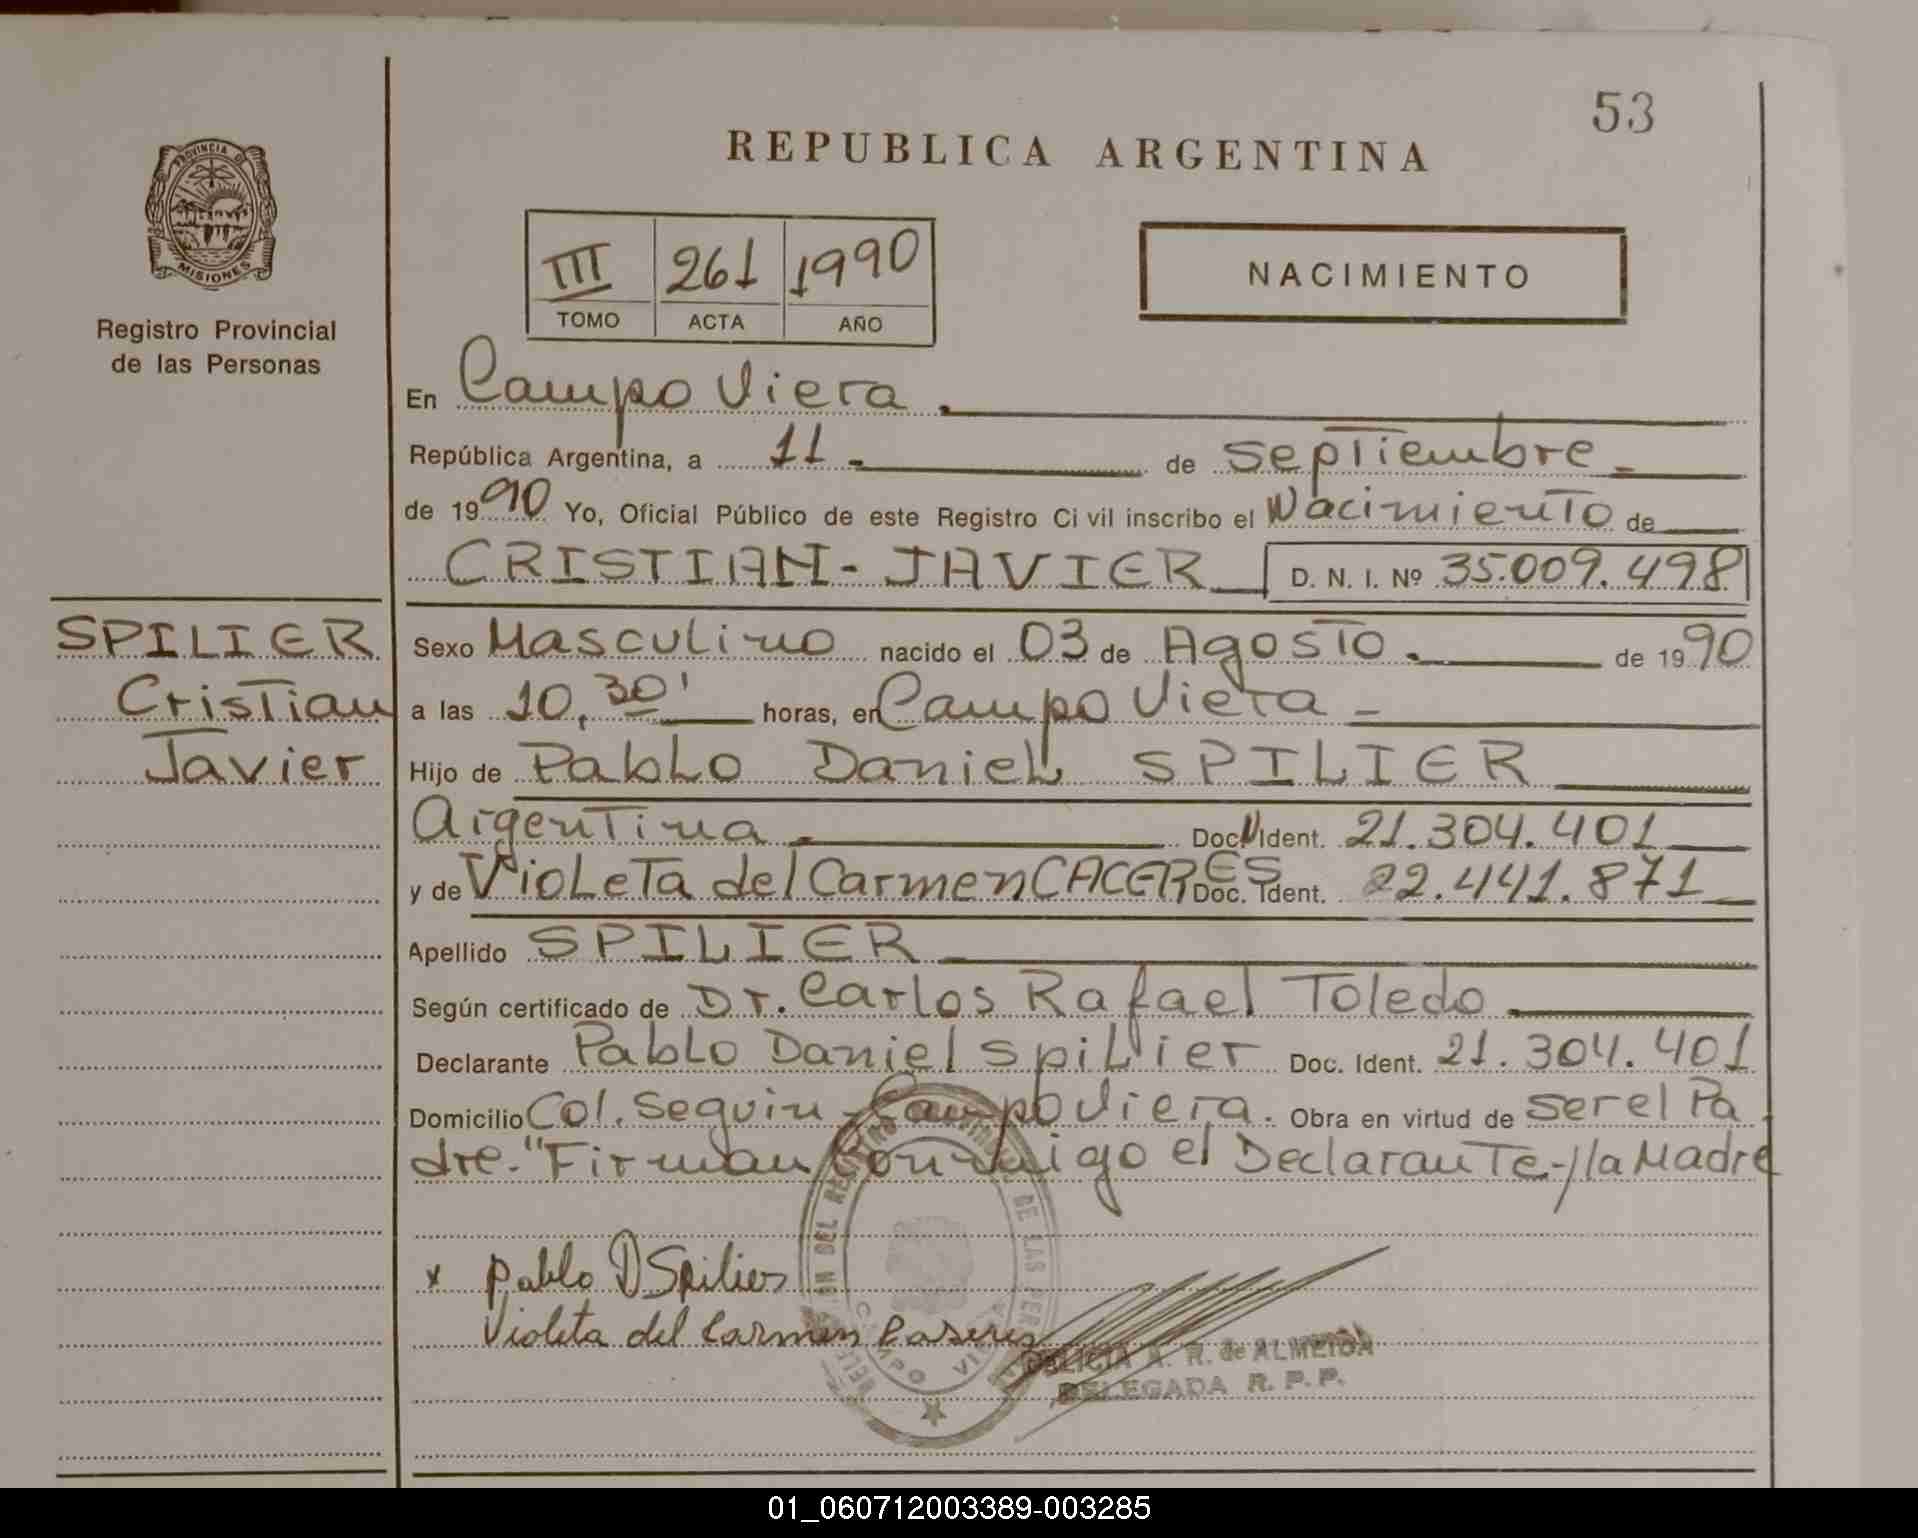 53
REPUBLICA ARGENTINA
PROVINCIA DE
MISIONES
Registro Provincial
de las Personas
III 261 1990
TOMO ACTA AÑO
NACIMIENTO
En Campo Viera.
República Argentina, a 11.- de septiembre.-
de 1990 Yo, Oficial Público de este Registro Ci vil inscribo el Nacimiento de
CRISTIAN-JAVIER D. N. I. Nº 35.009.498
SPILIER
Cristian
Javier
Sexo Masculino nacido el 03 de Agosto.- de 1990
a las 10,30' horas, en Campo Viera-
Hijo de Pablo Daniel SPILIER
Argentina.- Doc. Ident. 21.304.401
y de Violeta del Carmen CACERES Doc. Ident. 22.441.871
Apellido SPILIER
Según certificado de Dr. Carlos Rafael Toledo
Declarante Pablo Daniel Spilier Doc. Ident. 21.304.401
Domicilio Col. Seguin-Campo Viera. Obra en virtud de ser el Pa
dre.-"Firman Conmigo el Declarante-/la Madre
x Pablo D Spilier
Violeta del Carmen Caseres
DEL REGISTRO PROVINCIAL DE LAS PER
CAMPO VIERA
A. R. de ALMEIDA
DELEGADA R. P. P.
01_060712003389-003285